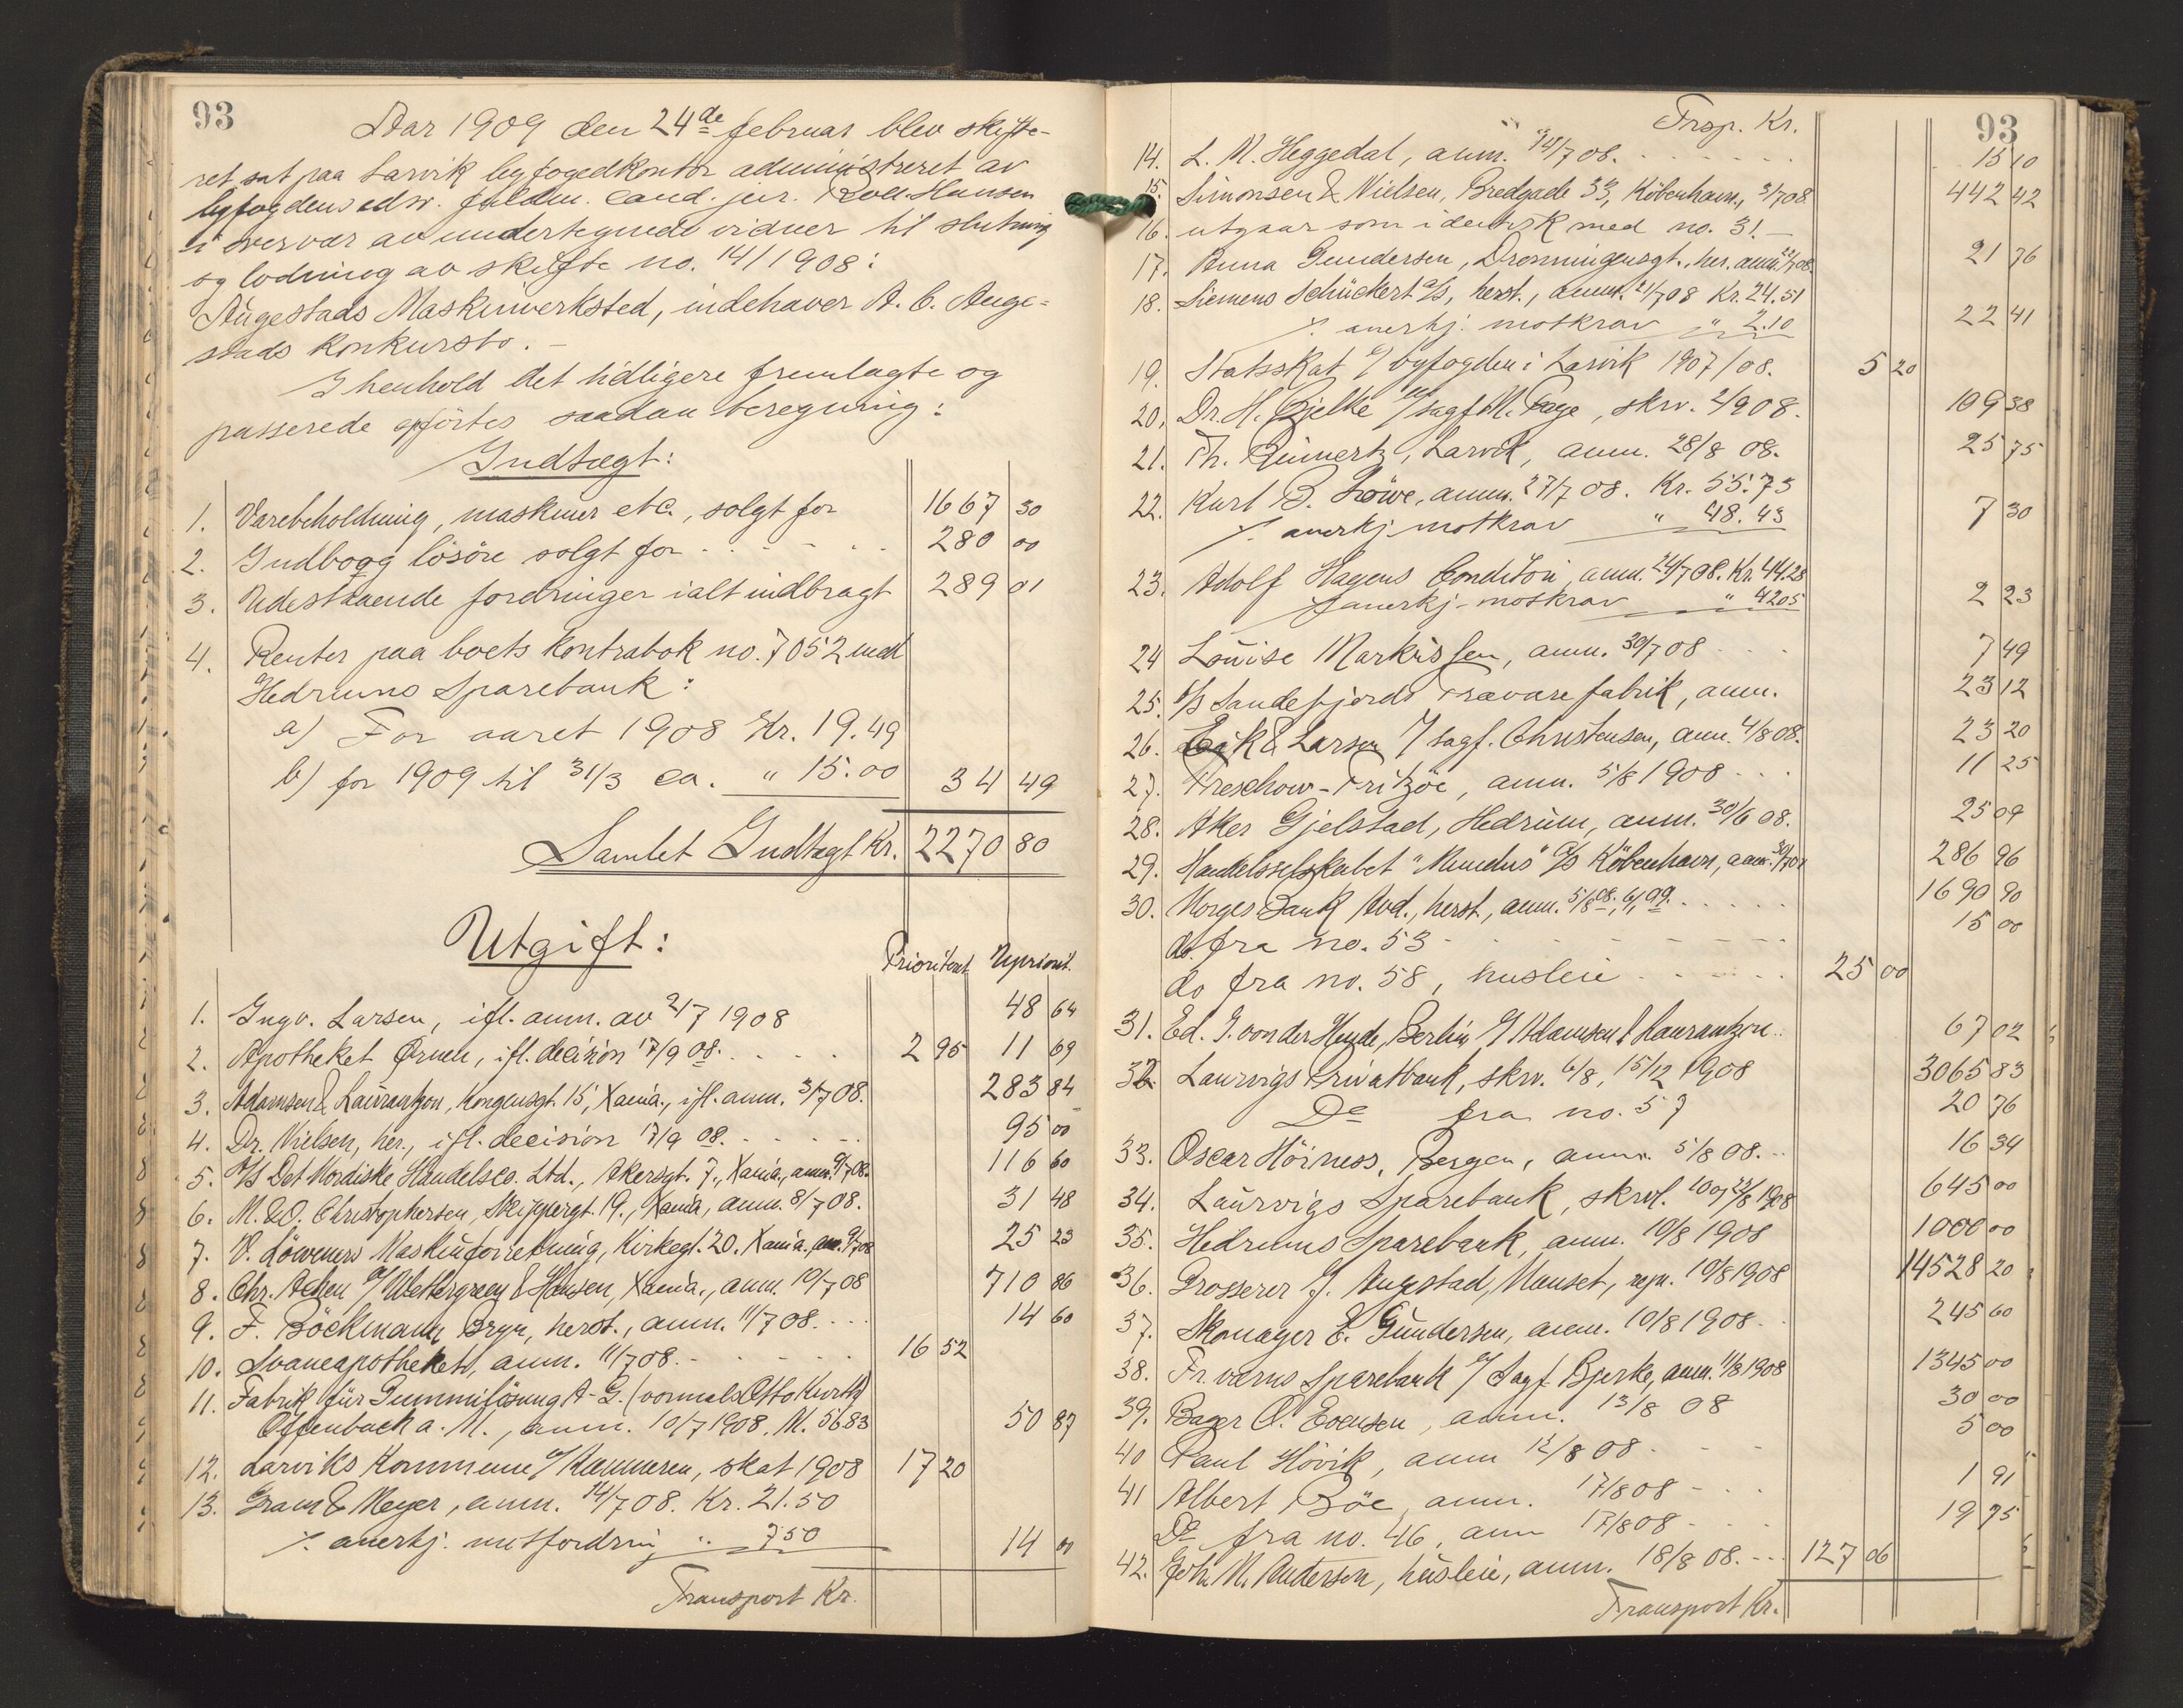 93
Aar 1909 den 24de februar blev skifte-
ret sat paa Larvik byfogedkontor administreret av
byfogdens edsv. fuldm. cand. jur. Hansen
i overvær av undertegnede vidner til slutning
og lodning av skifte no. 14/1908:
Augestads Maskinverksted, indehaver A. C. Auge-
stads konkursbo. —
I henhold det tidligere fremlagte og
passerede opførtes saadan beregning:
Indtægt:
1. Varebeholdning, maskiner etc., solgt for 1667 30
2. Indbo og lösöre solgt for - - - - 280 00
3. Udestaaende fordringer ialt indbragt 289 01
4. Renter paa boets kontrabok no. 7052 med
Hedrums Sparebank:
a) For aaret 1908 Kr. 19.49
b) for 1909 til 31/3 ca. " 15.00 34 49
Samlet Indtægt Kr. 2270 80
Utgift:
Prioritert Upriorit.
1. Ingv. Larsen, ifl. anm. av 2/7 1908 48 64
2. Apotheket Ørnen, ifl. decision 17/9 08. 2 95 11 69
3. Adamsen & Laurantzon, Kongensgt. 15, Xania., ifl. anm. 3/7 08. 283 84
4. Dr. Nielsen, her., ifl. decision 17/9 08. 95 00
5. A/S Det Nordiske Handelsco. Ltd., Akersgt. 7, Xania., anm. 9/7 08. 116 60
6. M. & O. Christophersen, Skippergt. 19., Xania, anm. 8/7 08. 31 48
7. V. Löweners Maskinforretning, Kirkegt. 20. Xania., anm. 9/7 08 25 23
8. Chr. Achen v/ Wettergreen & Hansen, Xania., anm. 10/7 08 710 86
9. F. Böckmann Bryn, herst., anm. 11/7 08. 14 60
10. Svaneapotheket, anm. 11/7 08. 16 52
11. Fabrik für Gummilösung A-G. (vormals Otto Kurth)
Offenbach a. M., anm. 10/7 1908. M. 56.83 50 87
12. Larviks Kommune v/ Kæmneren, skat 1908 17 20
13. Gram & Meyer, anm. 14/7 08. Kr. 21.50
÷ anerkj. motfordring " 7.50 14 00
Transport Kr.
93
Trsp. Kr.
14. L. M. Heggedal, anm. 14/7 08. 15 10
15. Simonsen & Nielsen, Bredgade 33, Köbenhavn, 3/7 08 442 42
16. utgaar som identisk med no. 31. —
17. Anna Gundersen, Dronningensgt., her. anm. 22/7 08. 21 76
18. Siemens Schückert A/S, herst., anm. 21/7 08 Kr. 24.51
÷ anerkj. motkrav " 2.10 22 41
19. Statsskat v/ byfogden i Larvik 1907/08. 5 20
20. Dr. H. Bjelke v/ sagf. M. Fage, skrv. 2/9 08. 109 38
21. Th. Reinertz, Larvik, anm. 28/8 08. 25 75
22. Karl B. Löwe, anm. 27/7 08. Kr. 55.73
÷ anerkj. motkrav " 48.43 7 30
23. Adolf Hagens Conditori, anm. 24/7 08. Kr. 44.28
÷ anerkj. motkrav " 42.05 2 23
24 Louise Markussen, anm. 30/7 08 7 49
25. A/S Sandefjords Trævarefabrik, anm. 23 12
26. Eek & Larsen v/ sagf. Christensen, anm. 4/8 08. 23 20
27. Treschow-Fritzöe, anm. 5/8 1908 11 25
28. Aker Gjelstad, Hedrum, anm. 30/6 08. 25 09
29. Handelsselskabet "Mundus" A/S Köbenhavn, anm. 30/7 08 286 96
30. Norges Bank Avd., herst., anm. 5/8 08, 6/1 09. 1690 90
do. fra no. 53 - - - - 15 00
do fra no. 58, husleie 25 00
31. Ed. J. von der Heyde, Berlin v/ Adamsen & Laurantzon. 67 02
32. Laurvigs Privatbank, skrv. 6/8, 15/12 1908 3065 83
Do fra no. 57 20 76
33. Oscar Höiness, Bergen, anm. 5/8 08. 16 34
34. Laurvigs Sparebank, skrvl. 10 og 22/8 1908 645 00
35. Hedrums Sparebank, anm. 10/8 1908 1000 00
36. Grosserer J. Augestad, Nanset, repr. 10/8 1908 14528 20
37. Skomager E. Gundersen, anm. 10/8 1908 245 60
38. Fr.værns Sparebank v/ Sagf. Bjerke, anm. 11/8 1908 1345 00
39. Bager O. Evensen, anm. 13/8 08 30 00
40 Paul Hövik, anm 12/8 08 - - - 5 00
41 Albert Böe, anm. 17/8 08 - - - 1 91
Do fra no. 46, anm 17/8 08 - - - 19 75
42. Joh. M. Andersen, husleie, anm. 18/8 08. 127 06
Transport Kr.